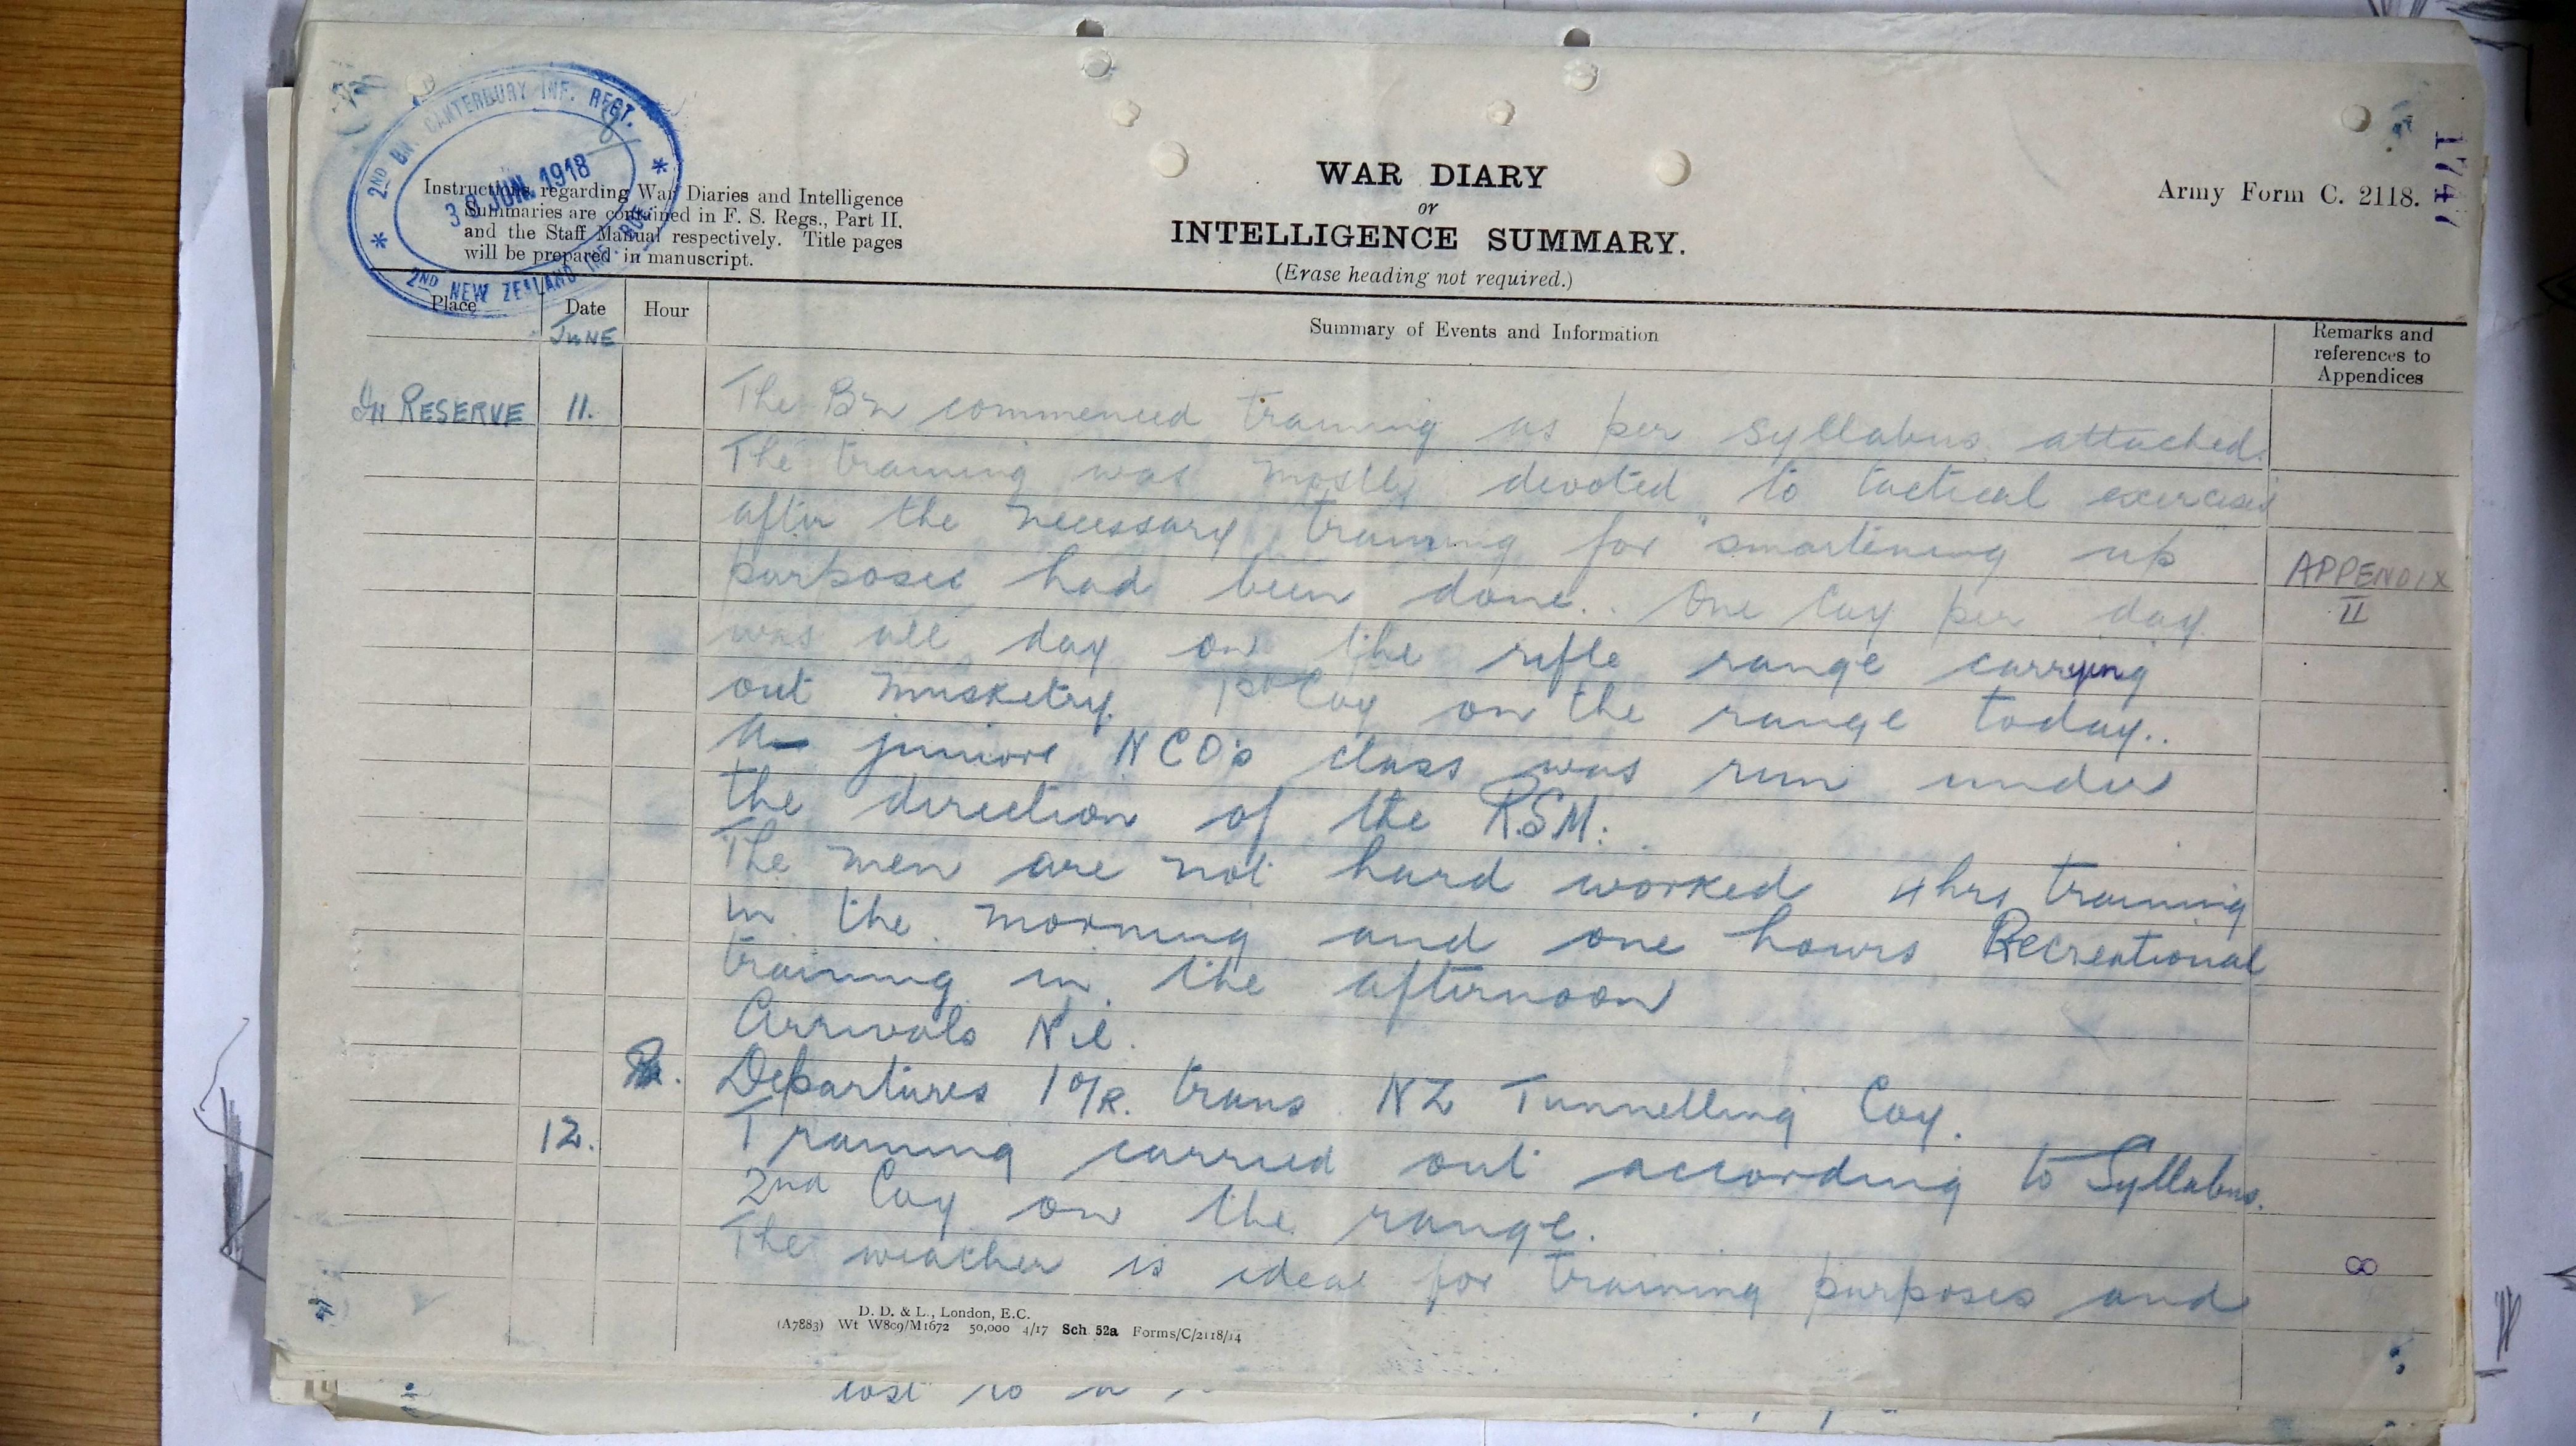 2ND BN CANTERBURY INF. REGT.
30 JUN. 1918
2ND NEW ZEALAND INF. BDE.
Instructions regarding War Diaries and Intelligence
Summaries are contained in F. S. Regs., Part II.
and the Staff Manual respectively. Title pages
will be prepared in manuscript.
WAR DIARY
or
INTELLIGENCE SUMMARY.
(Erase heading not required.)
Army Form C. 2118.
1747
Place Date Hour Summary of Events and Information Remarks and
references to
Appendices
JUNE
IN RESERVE 11. The Bn commenced training as per syllabus attached.
The training was mostly devoted to tactical exercises
after the necessary training for "smartening up
purposes had been done. One Coy per day
APPENDIX
II
was all day on the rifle range carrying
out musketry. 1st Coy on the range today..
A junior NCO's class was run under
the direction of the RSM.
The men are not hard worked 4hrs training
in the morning and one hours Recreational
training in the afternoon
Arrivals Nil.
Departures 1 O/R. trans NZ Tunnelling Coy.
12. Training carried out according to Syllabus.
2nd Coy on the range.
The weather is ideal for training purposes and
8
D. D. & L., London, E.C.
(A7883) Wt W809/M1672 50,000 4/17 Sch 52a Forms/C/2118/14